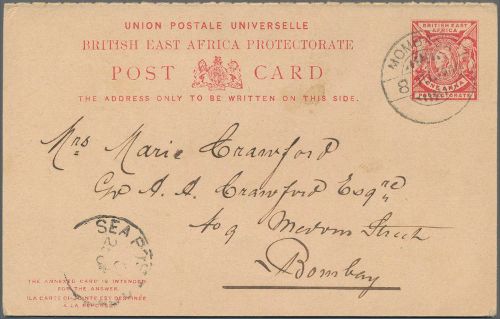 UNION POSTALE UNIVERSELLE
BRITISH EAST AFRICA PROTECTORATE
POST CARD
THE ADDRESS ONLY TO BE WRITTEN ON THIS SIDE.
BRITISH EAST AFRICA
ONE ANNA
PROTECTORATE
Mrs Marie Crawford
A. A. Crawford Esqre
409 Street
Bombay
SEA
THE ANNEXED CARD IS INTENDED
FOR THE ANSWER.
(LA CARTE CI-JOINTE EST DESTINÉE
A LA RÉPONSE)